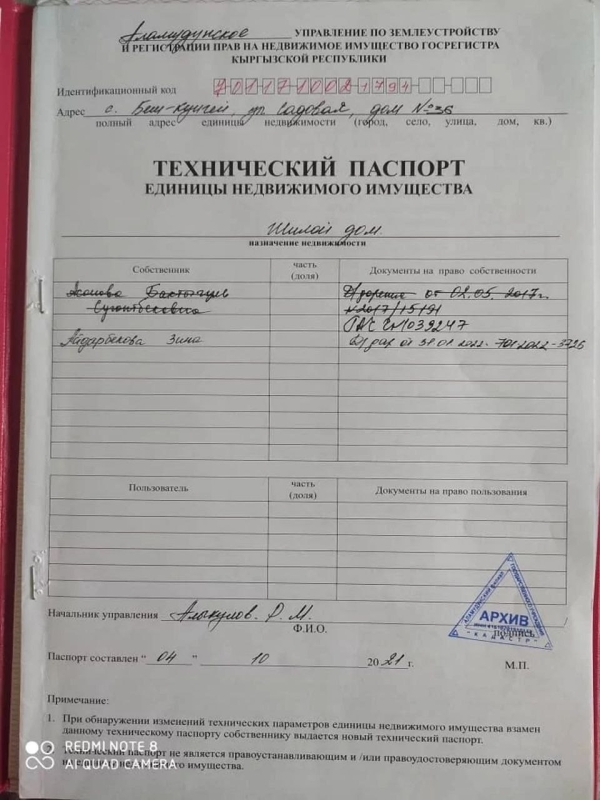 Аламудунское УПРАВЛЕНИЕ ПО ЗЕМЛЕУСТРОЙСТВУ
И РЕГИСТРАЦИИ ПРАВ НА НЕДВИЖИМОЕ ИМУЩЕСТВО ГОСРЕГИСТРА
КЫРГЫЗСКОЙ РЕСПУБЛИКИ
Идентификационный код 7011710021794
Адрес с. Беш-Кунгей, ул Садовая, дом №36
полный адрес единицы недвижимости (город, село, улица, дом, кв.)
ТЕХНИЧЕСКИЙ ПАСПОРТ
ЕДИНИЦЫ НЕДВИЖИМОГО ИМУЩЕСТВА
Жилой дом.
назначение недвижимости
Собственник часть (доля) Документы на право собственности
от 02.05.2017г.
№2017/15191
039247
Айдарбекова Зина от 31.01.2022-
Пользователь часть (доля) Документы на право пользования
Начальник управления Алыкулов. Р. М.
Ф.И.О.
АРХИВ
КАДАСТР
подпись
Паспорт составлен " 04 " 10 2021 г.
М.П.
Примечание:
1. При обнаружении изменений технических параметров единицы недвижимого имущества взамен
данному техническому паспорту собственнику выдается новый технический паспорт.
Технический паспорт не является правоустанавливающим и /или правоудостоверяющим документом
недвижимого имущества.
REDMI NOTE 8
AI QUAD CAMERA